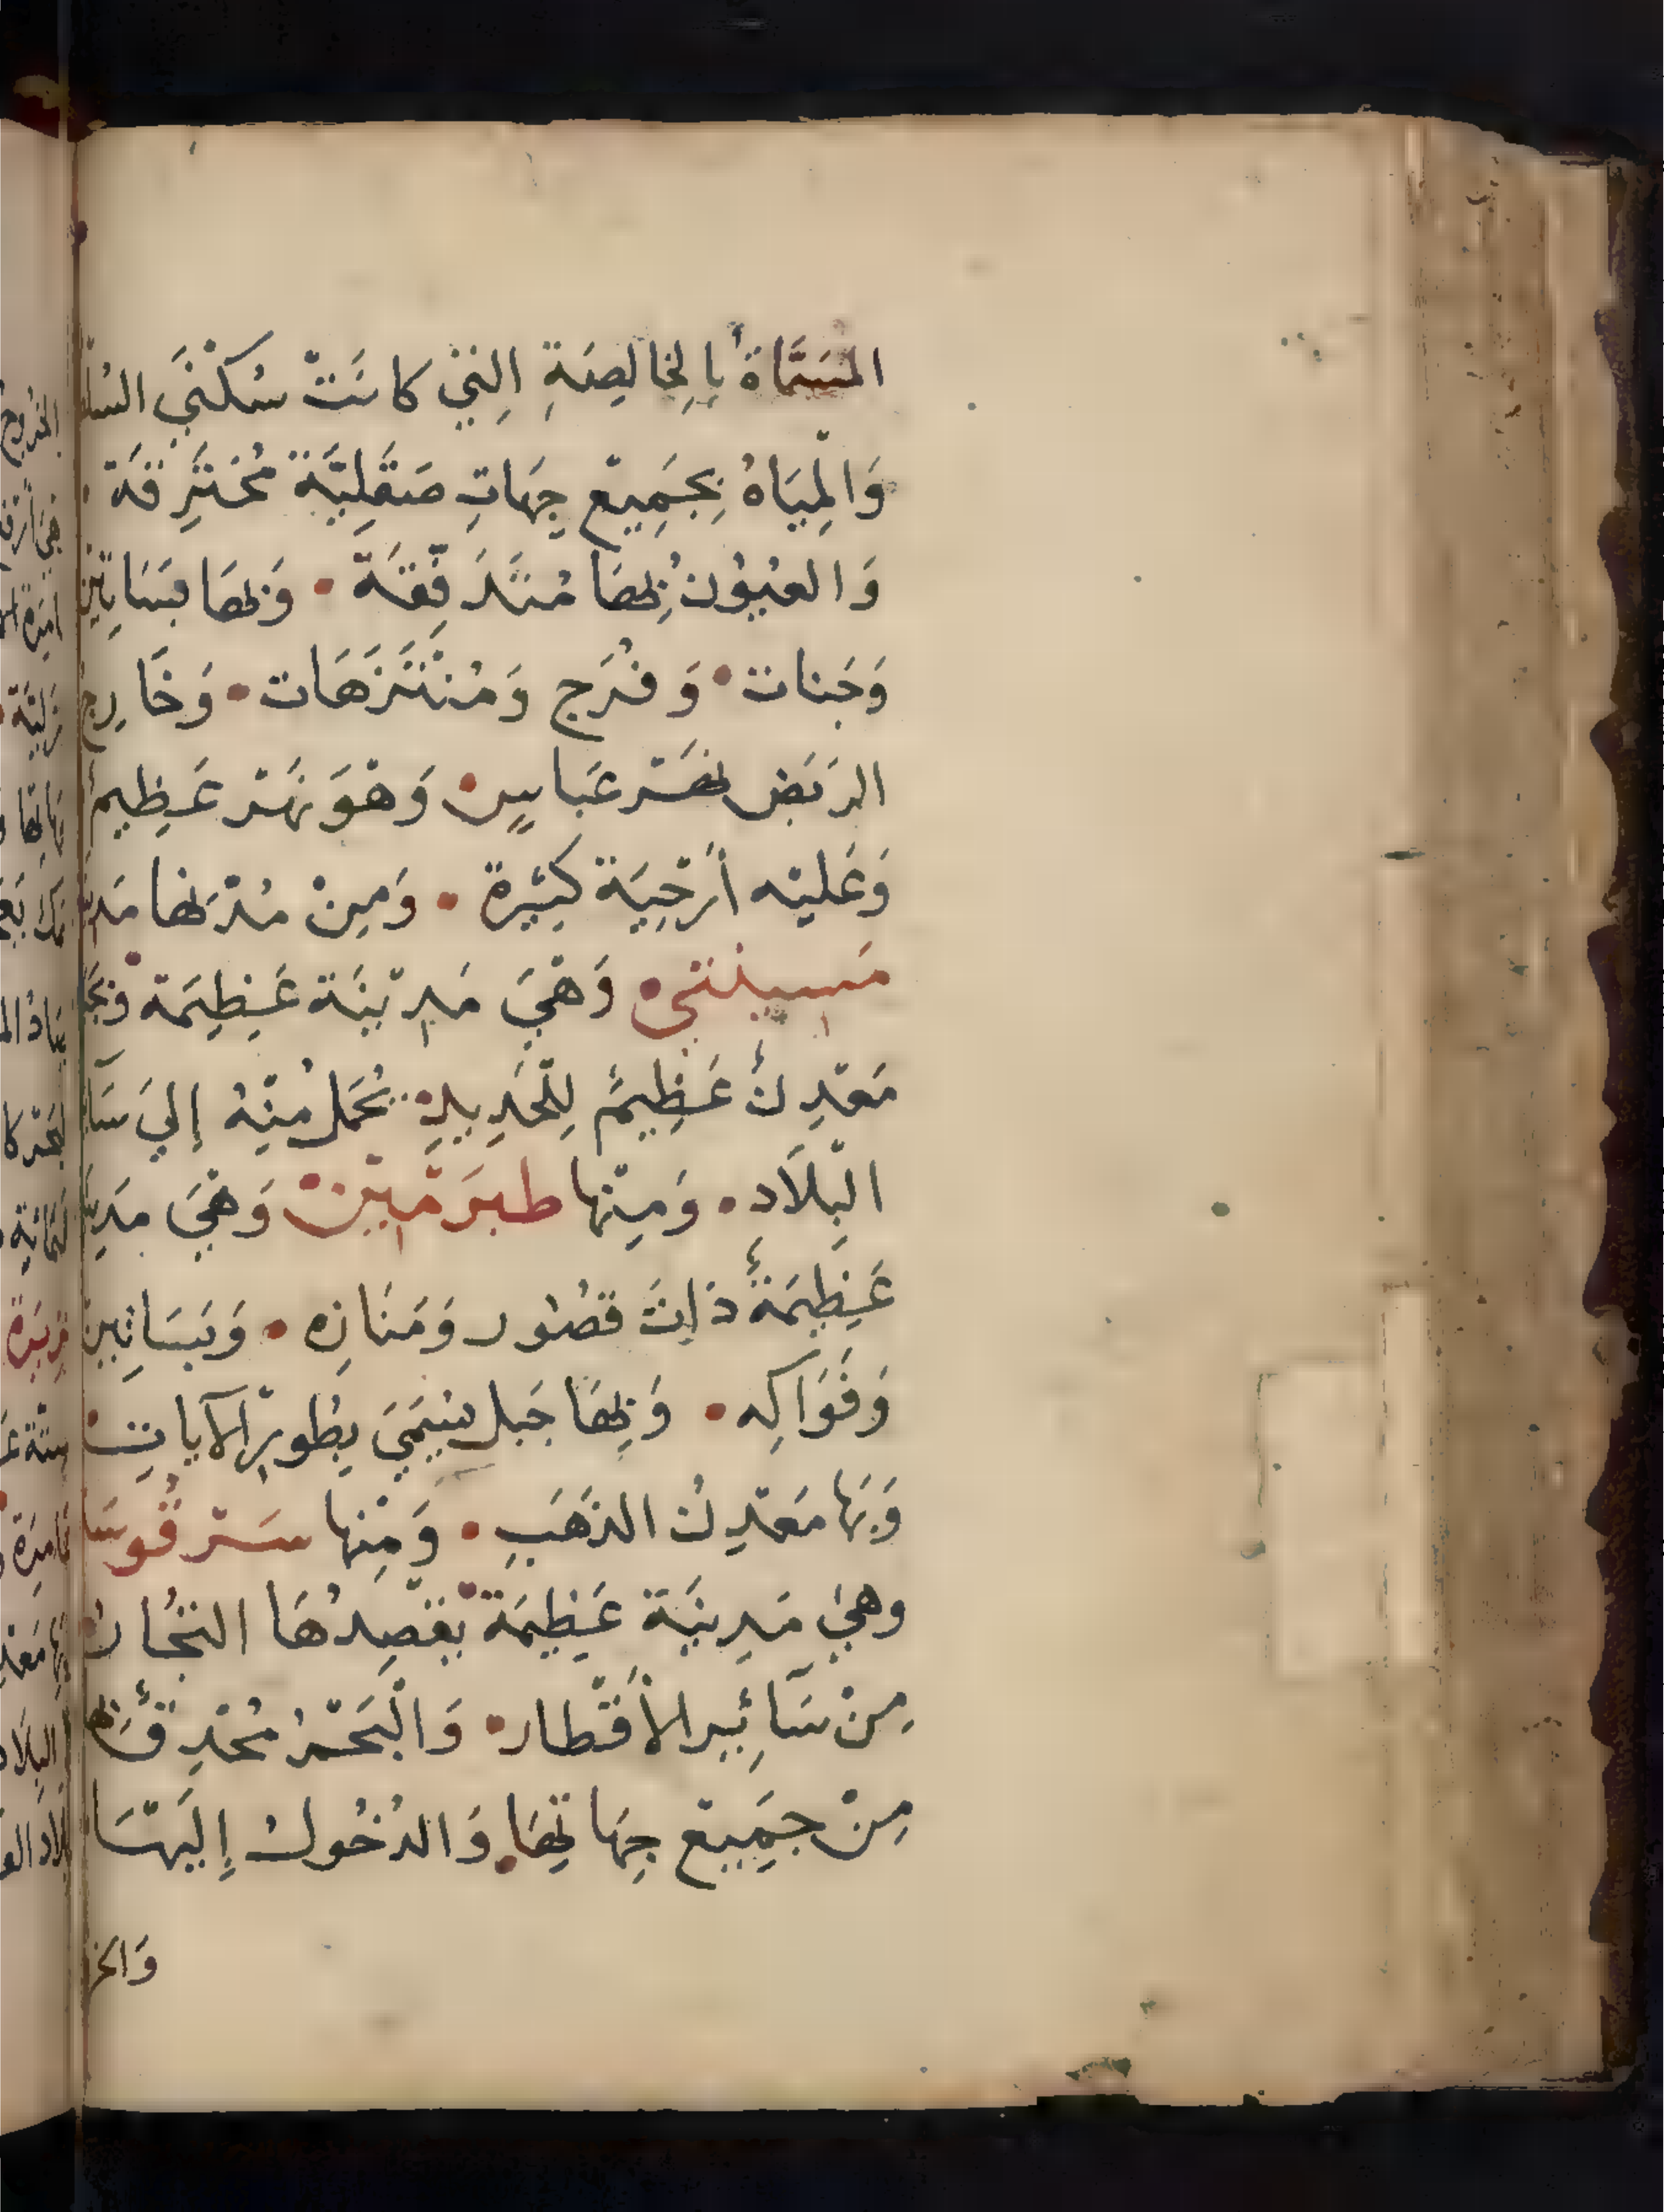 المُسَمَّاةُ بِالخَالِصَةِ الَّتِي كَانَتْ سُكْنَى
وَالْمِيَاهُ بِجَمِيعِ جِهَاتِ صَقَلِيَّة مُخْتَرِقَة
وَالعُيُونُ بِهَا مُتَدَفِّقَة • وَبِهَا بَسَاتِين
وَجَنات • وَفُرَج وَمُنْتَزَهَات • وَخَارِج
الرَبَض نَهْر عَبَاسٍ • وَهْوَ نَهْر عَظِيمٌ
وَعَلَيْه أَرْحِيَة كَثِيرة • وَمِنْ مُدْنِهَا
مَسِيننى • وَهْيَ مَدِيْنَة عَظِيمَة
مَعْدِنٌ عَظِيمٌ لِلْحَدِيدِ • يُحْمَلُ مِنْهُ إِلَي
الْبِلَادِ • وَمِنْها طَبَرَمْيْن وَهْيَ
عَظِيمَةٌ ذَاتَ قصُور وَمَنَازِه • وَبَسَاتِين
وَفَوَاكِه • وَبِهَا جَبل يُسَمَى بِطُورِ الآيات
وَبَها مَعْدِنُ الذَهَبِ • وَمِنْها سَرْقُوسَا
وَهيَ مَدِينَة عَظِيمَة يَقْصِدُهَا التُجَّار
مِنْ سَآئِرِ الأَقْطار • وَالْبَحْرُ مُحْدِقٌ بِهَا
مِنْ جَمِيعْ جِهَاتِهَا • وَالدُخُولُ إِلَيْهَا